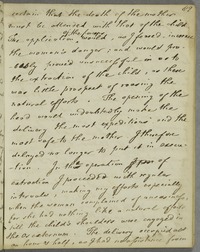 49
certain that the death of the mother
must be attended with that of the child
The application of the Forceps would, as I feared, increase
the woman's danger; and would pro-
bably prove unsuccessful in
the extraction of the child, as there
was little prospect of rousing the
natural efforts. The opening of the
head would undoubtedly make the
delivery the most expeditious and the
most safe to the mother I therefore
delayed no longer to put it in execu-
tion. In the operation of
extraction I proceeded with regular
intervals, making my efforts especially
when the woman complained of uneasiness,
for she had nothing like a labour effort
till the child's shoulders were engaged in
the Os externum. The delivery occupied me
an hour & half, as I had